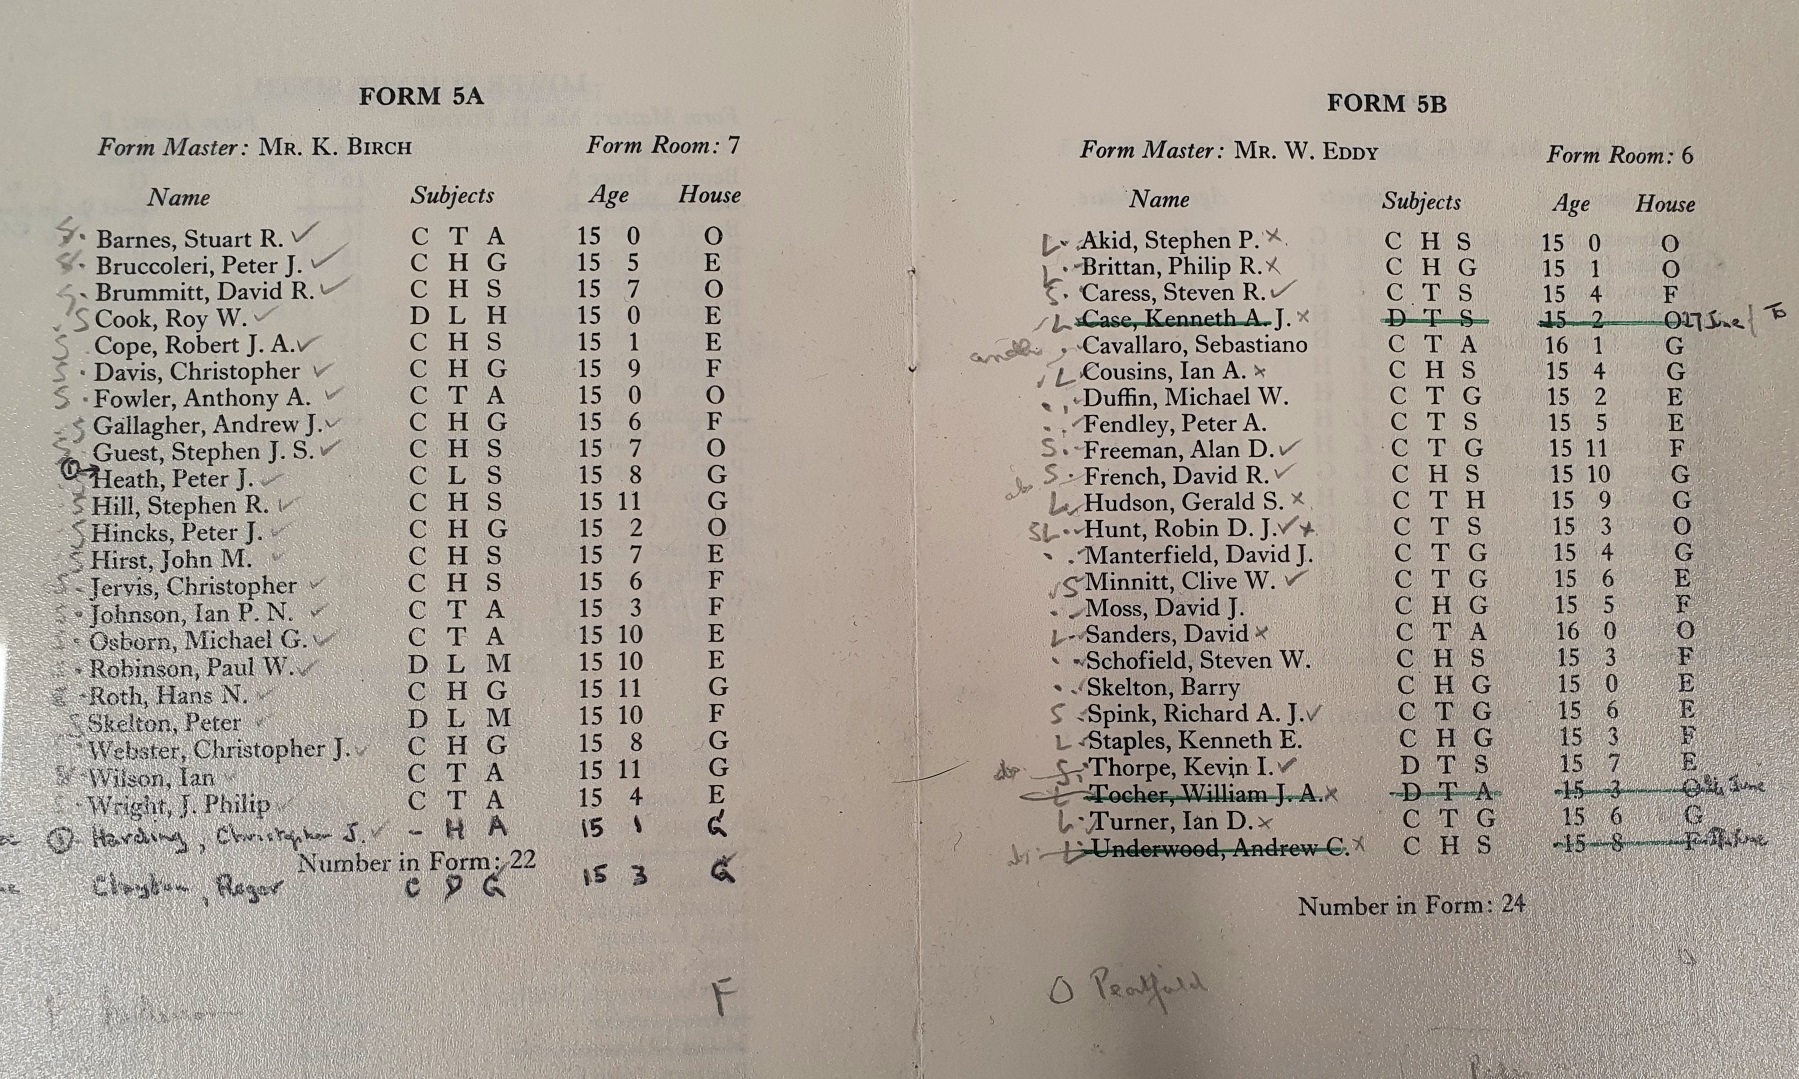 FORM 5A
Form Master: MR. K. BIRCH Form Room: 7
Name Subjects Age House
S Barnes, Stuart R. ✓ C T A 15 0 O
S Bruccoleri, Peter J. ✓ C H G 15 5 E
S Brummitt, David R. ✓ C H S 15 7 O
S Cook, Roy W. ✓ D L H 15 0 E
S Cope, Robert J. A. ✓ C H S 15 1 E
S Davis, Christopher ✓ C H G 15 9 F
S Fowler, Anthony A. ✓ C T A 15 0 O
S Gallagher, Andrew J. ✓ C H G 15 6 F
S Guest, Stephen J. S. ✓ C H S 15 7 O
Heath, Peter J. ✓ C L S 15 8 G
S Hill, Stephen R. ✓ C H S 15 11 G
S Hincks, Peter J. ✓ C H G 15 2 O
S Hirst, John M. ✓ C H S 15 7 E
S Jervis, Christopher ✓ C H S 15 6 F
S Johnson, Ian P. N. ✓ C T A 15 3 F
S Osborn, Michael G. ✓ C T A 15 10 E
S Robinson, Paul W. ✓ D L M 15 10 E
Roth, Hans N. ✓ C H G 15 11 G
S Skelton, Peter ✓ D L M 15 10 F
Webster, Christopher J. ✓ C H G 15 8 G
Wilson, Ian ✓ C T A 15 11 G
Wright, J. Philip ✓ C T A 15 4 E
① Harding, Christopher J. ✓ - H A 15 1 G
Number in Form: 22
Clayton, Roger C D G 15 3 G
F
FORM 5B
Form Master: MR. W. EDDY Form Room: 6
Name Subjects Age House
L Akid, Stephen P. × C H S 15 0 O
L Brittan, Philip R. × C H G 15 1 O
S Caress, Steven R. ✓ C T S 15 4 F
L Case, Kenneth A. J. × D T S 15 2 O 27 June
Cavallaro, Sebastiano C T A 16 1 G
L Cousins, Ian A. × C H S 15 4 G
Duffin, Michael W. C T G 15 2 E
Fendley, Peter A. C T S 15 5 E
S Freeman, Alan D. ✓ C T G 15 11 F
S French, David R. ✓ C H S 15 10 G
L Hudson, Gerald S. × C T H 15 9 G
SL Hunt, Robin D. J. ✓ × C T S 15 3 O
Manterfield, David J. C T G 15 4 G
S Minnitt, Clive W. ✓ C T G 15 6 E
Moss, David J. C H G 15 5 F
L Sanders, David × C T A 16 0 O
Schofield, Steven W. C H S 15 3 F
Skelton, Barry C H G 15 0 E
S Spink, Richard A. J. ✓ C T G 15 6 E
L Staples, Kenneth E. C H G 15 3 F
S Thorpe, Kevin I. ✓ D T S 15 7 E
L Tocher, William J. A. × D T A 15 3 O June
L Turner, Ian D. × C T G 15 6 G
L Underwood, Andrew C. × C H S 15 8 F June
Number in Form: 24
O Peatfield